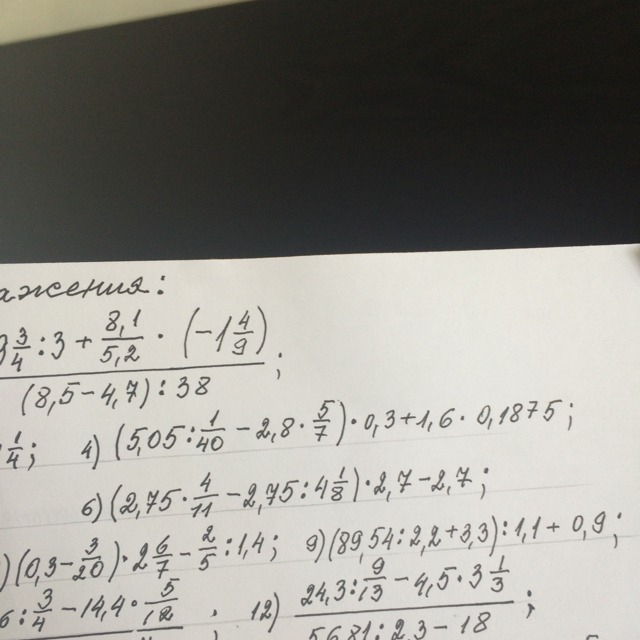 ажения:
3/4 : 3 + 8,1/5,2 · (-1 4/9)
(8,5-4,7) : 38 ;
1/4; 4) (5,05 : 1/40 - 2,8 · 5/7) · 0,3 + 1,6 · 0,1875;
6) (2,75 · 4/11 - 2,75 : 4 1/8) · 2,7 - 2,7;
) (0,3 - 3/20) · 2 6/7 - 2/5 : 1,4; 9) (89,54 : 2,2 + 3,3) : 1,1 + 0,9;
6 : 3/4 - 14,4 · 5/12 ; 12) 24,3 : 9/13 - 4,5 · 3 1/3 ;
56,81 : 2,3 - 18